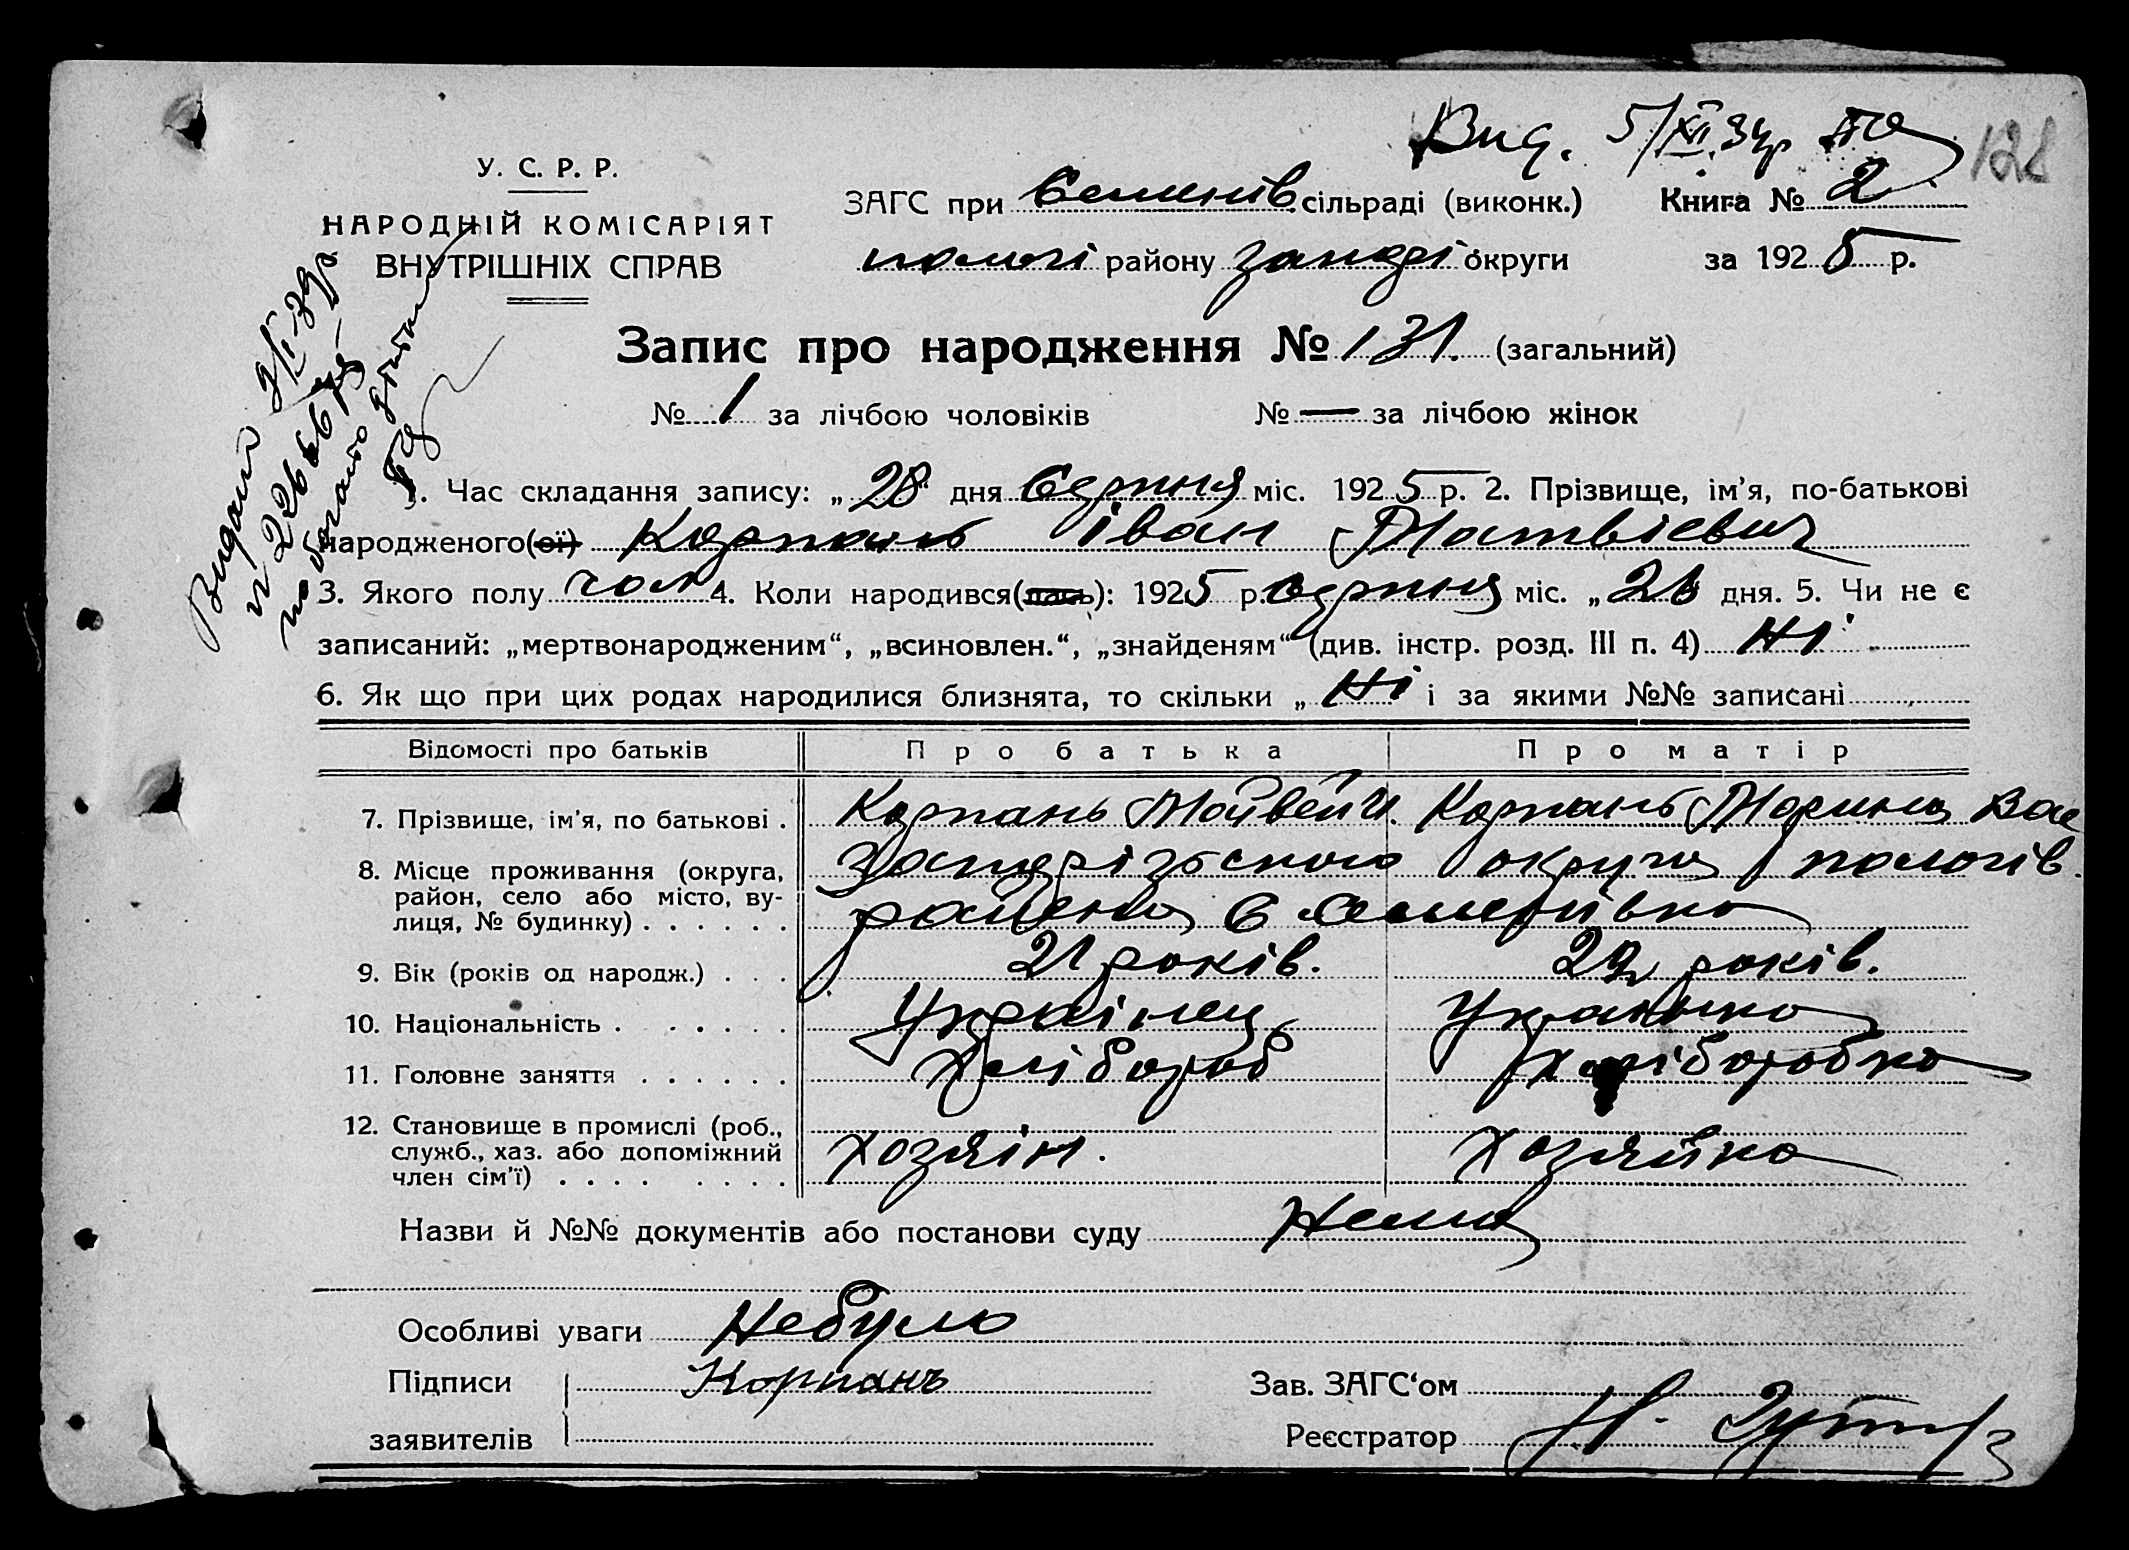 Вид. 5/XII 34р.
128
У. С. Р. Р.
НАРОДНІЙ КОМІСАРІЯТ
ВНУТРІШНІХ СПРАВ
ЗАГС при Семенів сільраді (виконк.) Книга № 2
пологі району запорі округи за 1925 р.
Запис про народження № 131. (загальний)
№ 1 за лічбою чоловіків № — за лічбою жінок
1. Час складання запису: „28" дня Серпня міс. 1925 р. 2. Прізвище, ім'я, по-батькові
народженого(ої) Корпань Іван Матвієвич
3. Якого полу чол 4. Коли народився(лась): 1925 р. серпня міс. „ дня. 5. Чи не є
записаний: „мертвонародженим“, „всиновлен.“, „знайденям“ (див. інстр. розд. III п. 4) Ні
6. Як що при цих родах народилися близнята, то скільки „ Ні і за якими №№ записані
Відомості про батьків Про батька Про матір
7. Прізвище, ім'я, по батькові . Корпань Матвей И. Корпань Марина Вас
8. Місце проживання (округа, Запорізького округа пологів.
район, село або місто, ву- району С Семенівка
лиця, № будинку) . . . . . .
9. Вік (років од народж.) . . . 21 років. років.
10. Національність . . . . . . Українец Українка
11. Головне заняття . . . . . . Хлібороб Хліборобка
12. Становище в промислі (роб.,
служб., хаз. або допоміжний хозяін. Хозяйка
член сім'ї) . . . . . . . .
Назви й №№ документів або постанови суду Нема
Особливі уваги Небуло
Підписи Корпанъ Зав. ЗАГС‘ом
заявителів Реєстратор
Видано